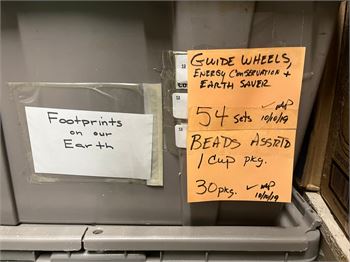 Footprints
on our
Earth
GUIDE WHEELS,
ENERGY CONSERVATION +
EARTH SAVER
54 sets ✓ MP
10/10/19
BEADS ASSRTD
1 CUP pkg.
30 pkg. ✓ MP
10/10/19